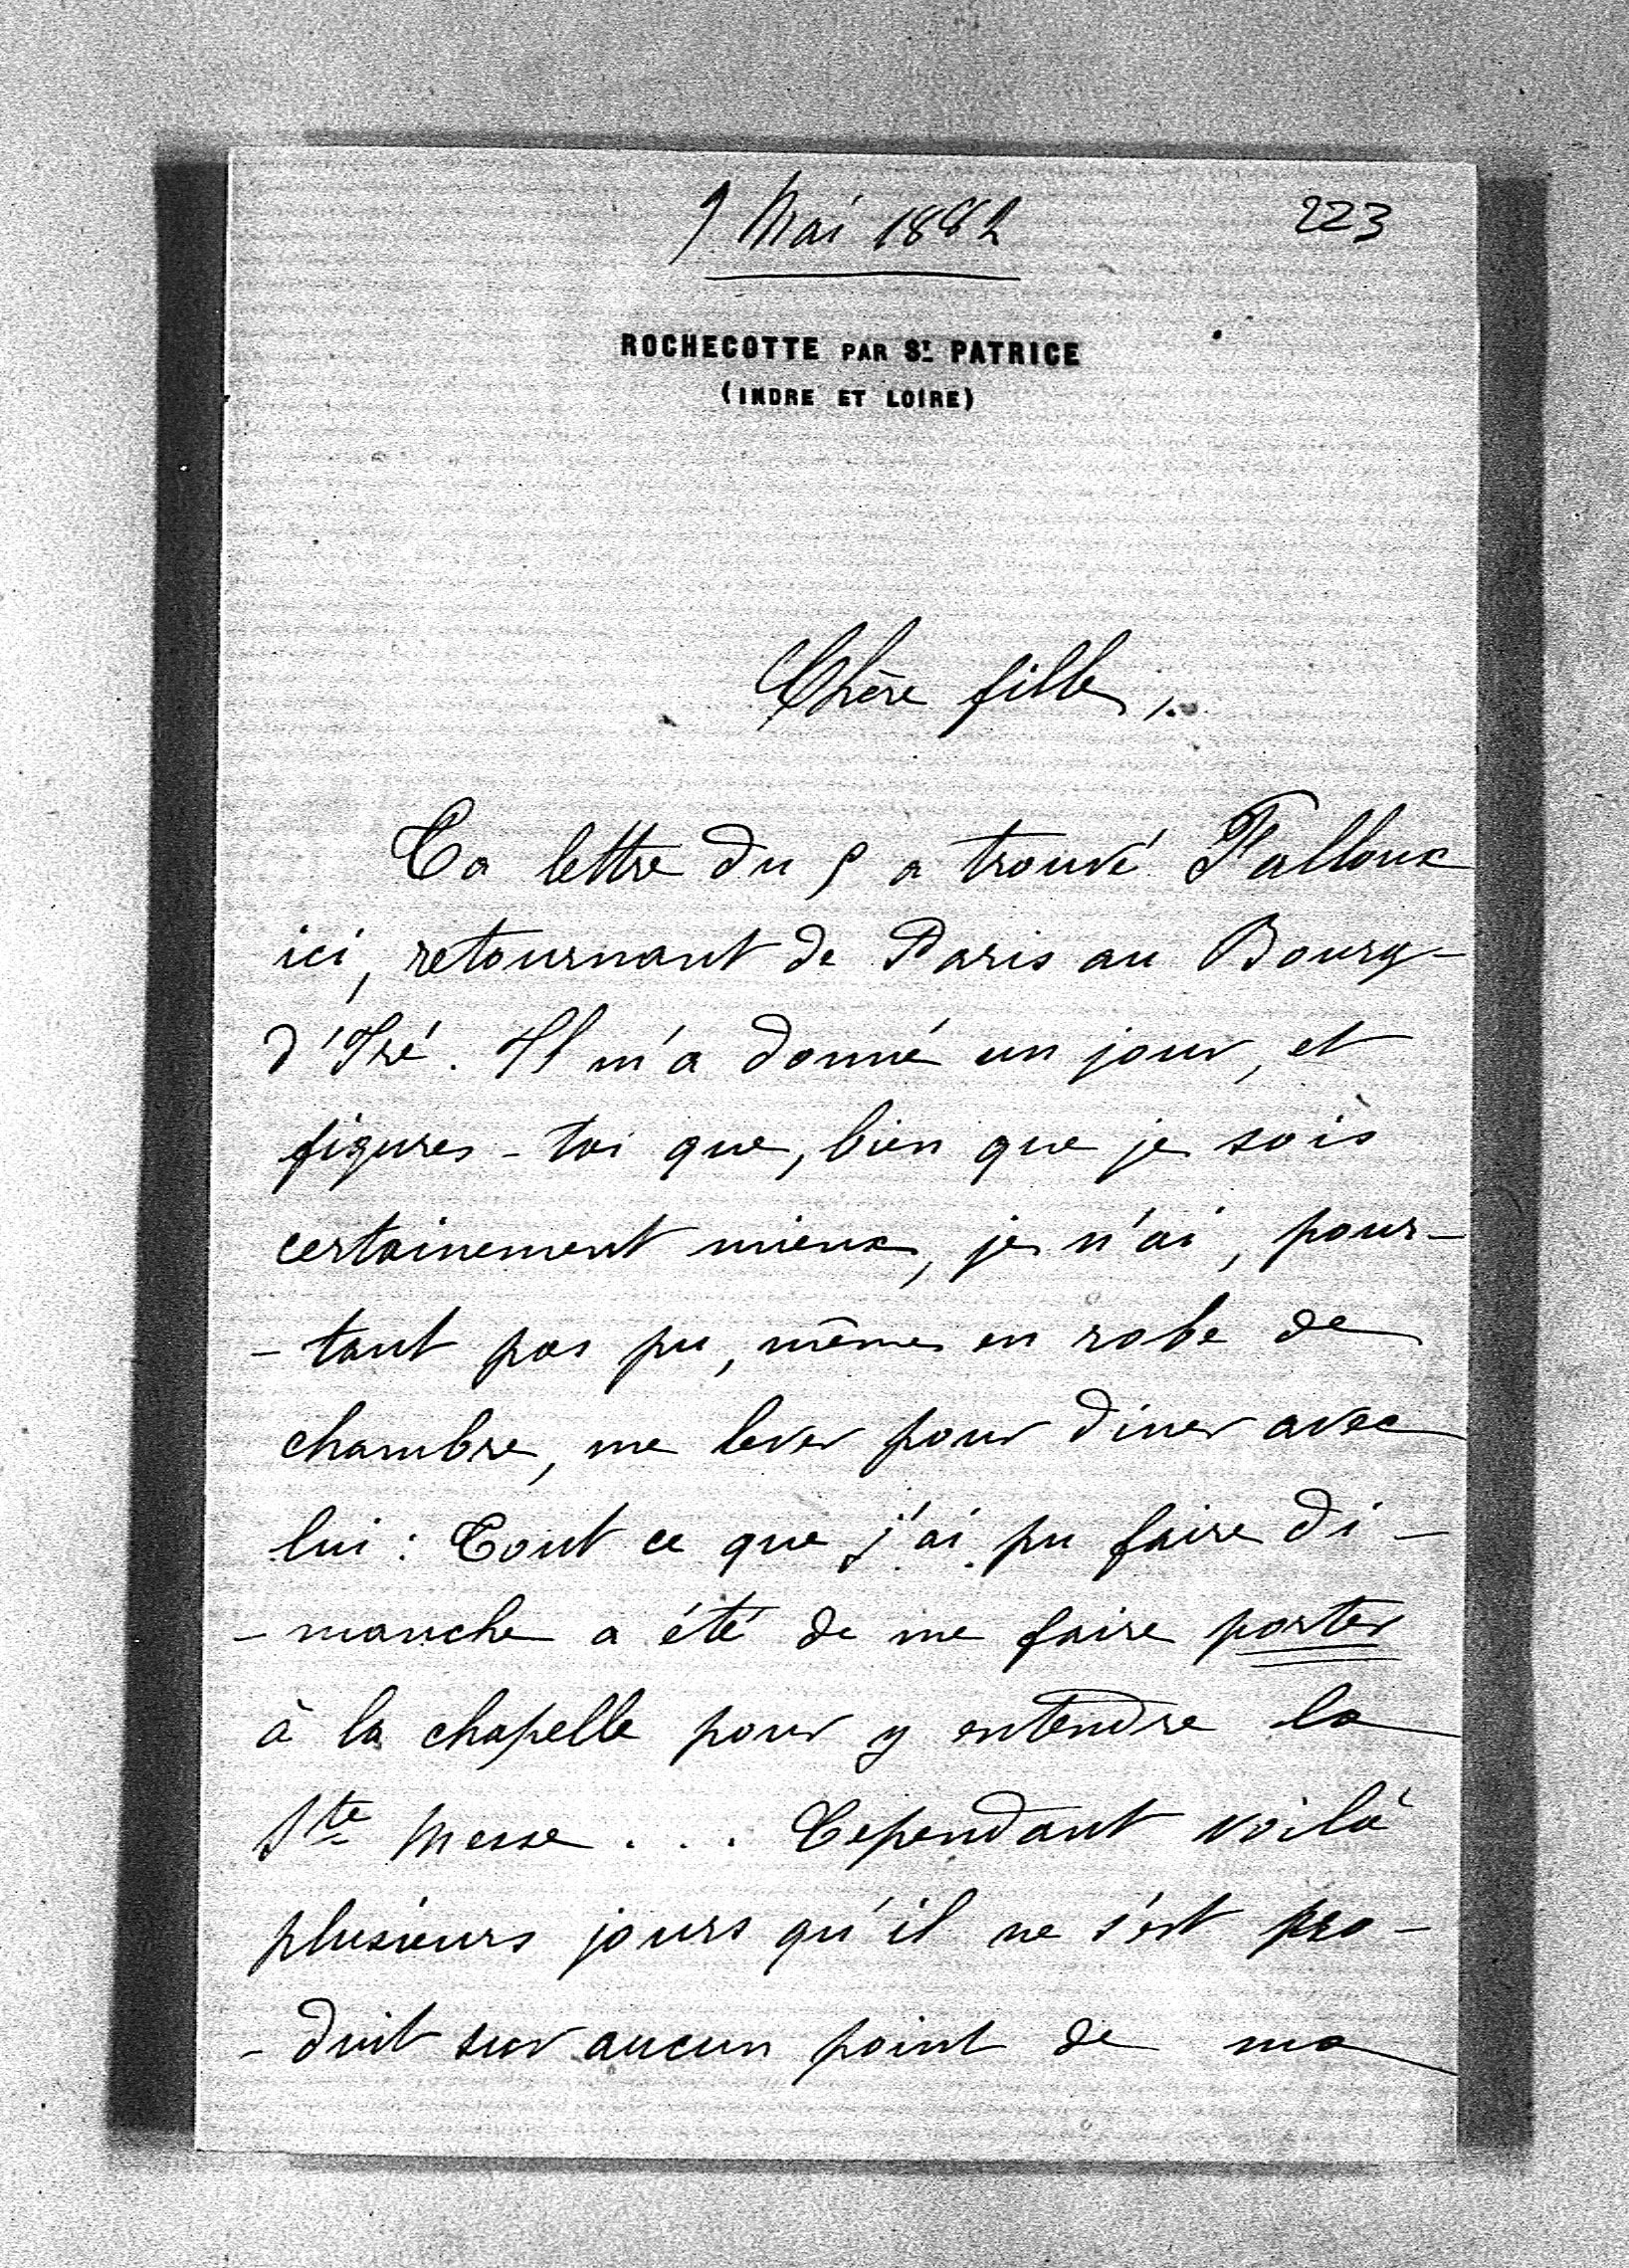 9 Mai 1882
223
ROCHECOTTE PAR St. PATRICE
(INDRE ET LOIRE)
Chère fille,
Ta lettre du 5 a trouvé Falloux
ici, retournant de Paris au Bourg-
d'Iré. Il m'a donné un jour, et
figures-toi que, bien que je sois
certainement mieux, je n'ai, pour-
-tant pas pu, même en robe de
chambre, me lever pour diner avec
lui : Tout ce que j'ai pu faire di-
-manche a été de me faire porter
à la chapelle pour y entendre la
Ste Messe . . . Cependant voilà
plusieurs jours qu'il ne s'est pro-
-duit sur aucun point de ma